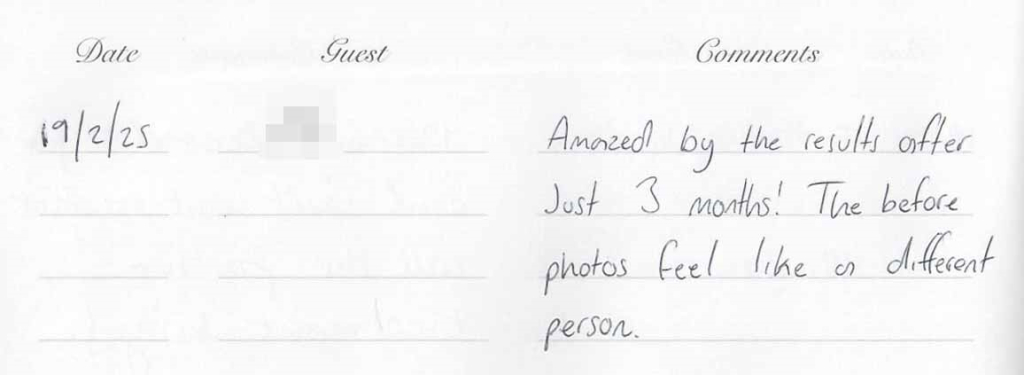 Date Guest Comments
19/2/25 Amazed by the results after
Just 3 months! The before
photos feel like a different
person.